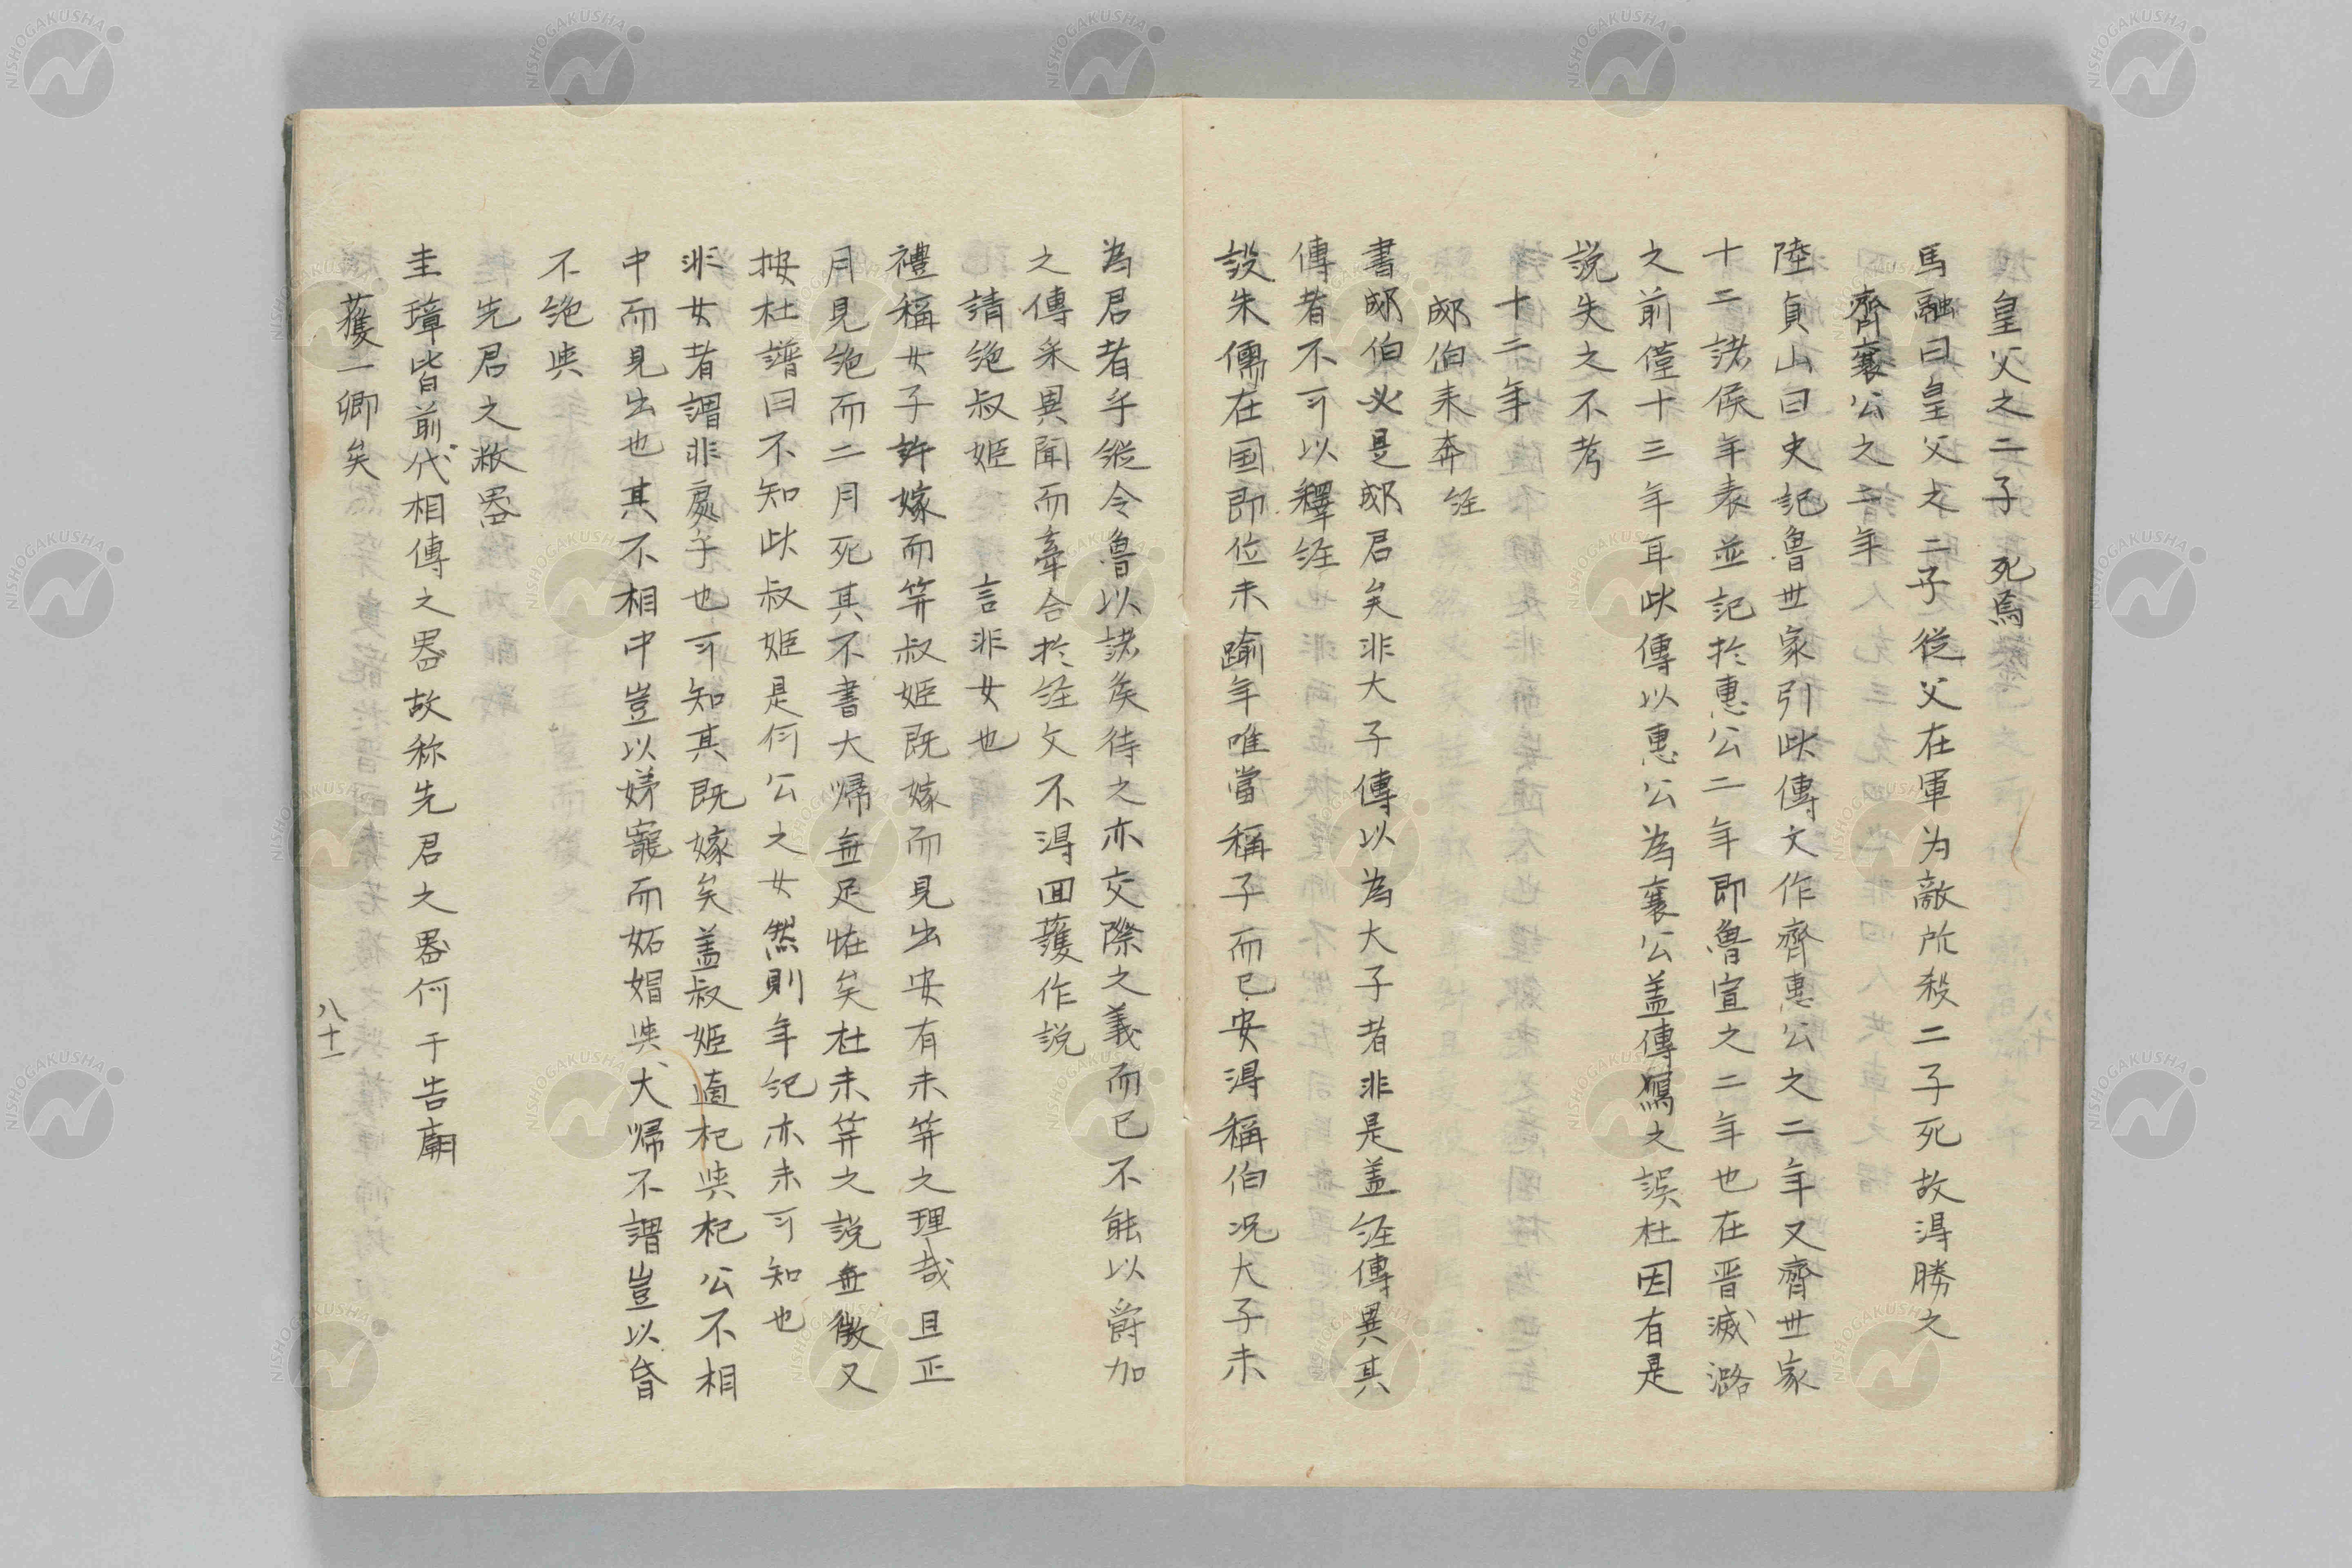 皇父之二子 死焉
馬融曰皇父之二子從父在軍为敵所殺二子死故得勝之
齊襄公之二年
陸貞山曰史記魯世家引此傳文作齊惠公之二年又齊世家
十二諸侯年表並記於惠公二年即魯宣之二年也在晋滅潞
之前僅十三年耳此傳以惠公為襄公盖傳寫之誤杜因有是
説失之不考
十二年
郕伯来奔 経
書郕伯必是郕君矣非大子傳以為大子者非是盖経傳異其
傳者不可以釋経
設朱儒在国即位未踰年唯當稱子而已安得稱伯况大子未
為君者乎縦令魯以諸矦待之亦交際之義而已不能以爵加
之傳采異聞而牽合於経文不得回護作説
請絶叔姫 言非女也
禮稱女子許嫁而笄叔姫既嫁而見出安有未笄之理哉且正
月見絶而二月死其不書大帰無足怪矣杜未笄之説無徴又
按杜譜曰不知此叔姫是何公之女然則年記亦未可知也
非女者謂非処子也可知其既嫁矣盖叔姫適杞與杞公不相
中而見出也其不相中豈以娣寵而妬媢與大帰不謂豈以昏
不絶與
先君之敝噐
圭璋皆前代相傳之噐故称先君之噐何干告廟
獲一卿矣
八十一
NISHOGAKUSHA